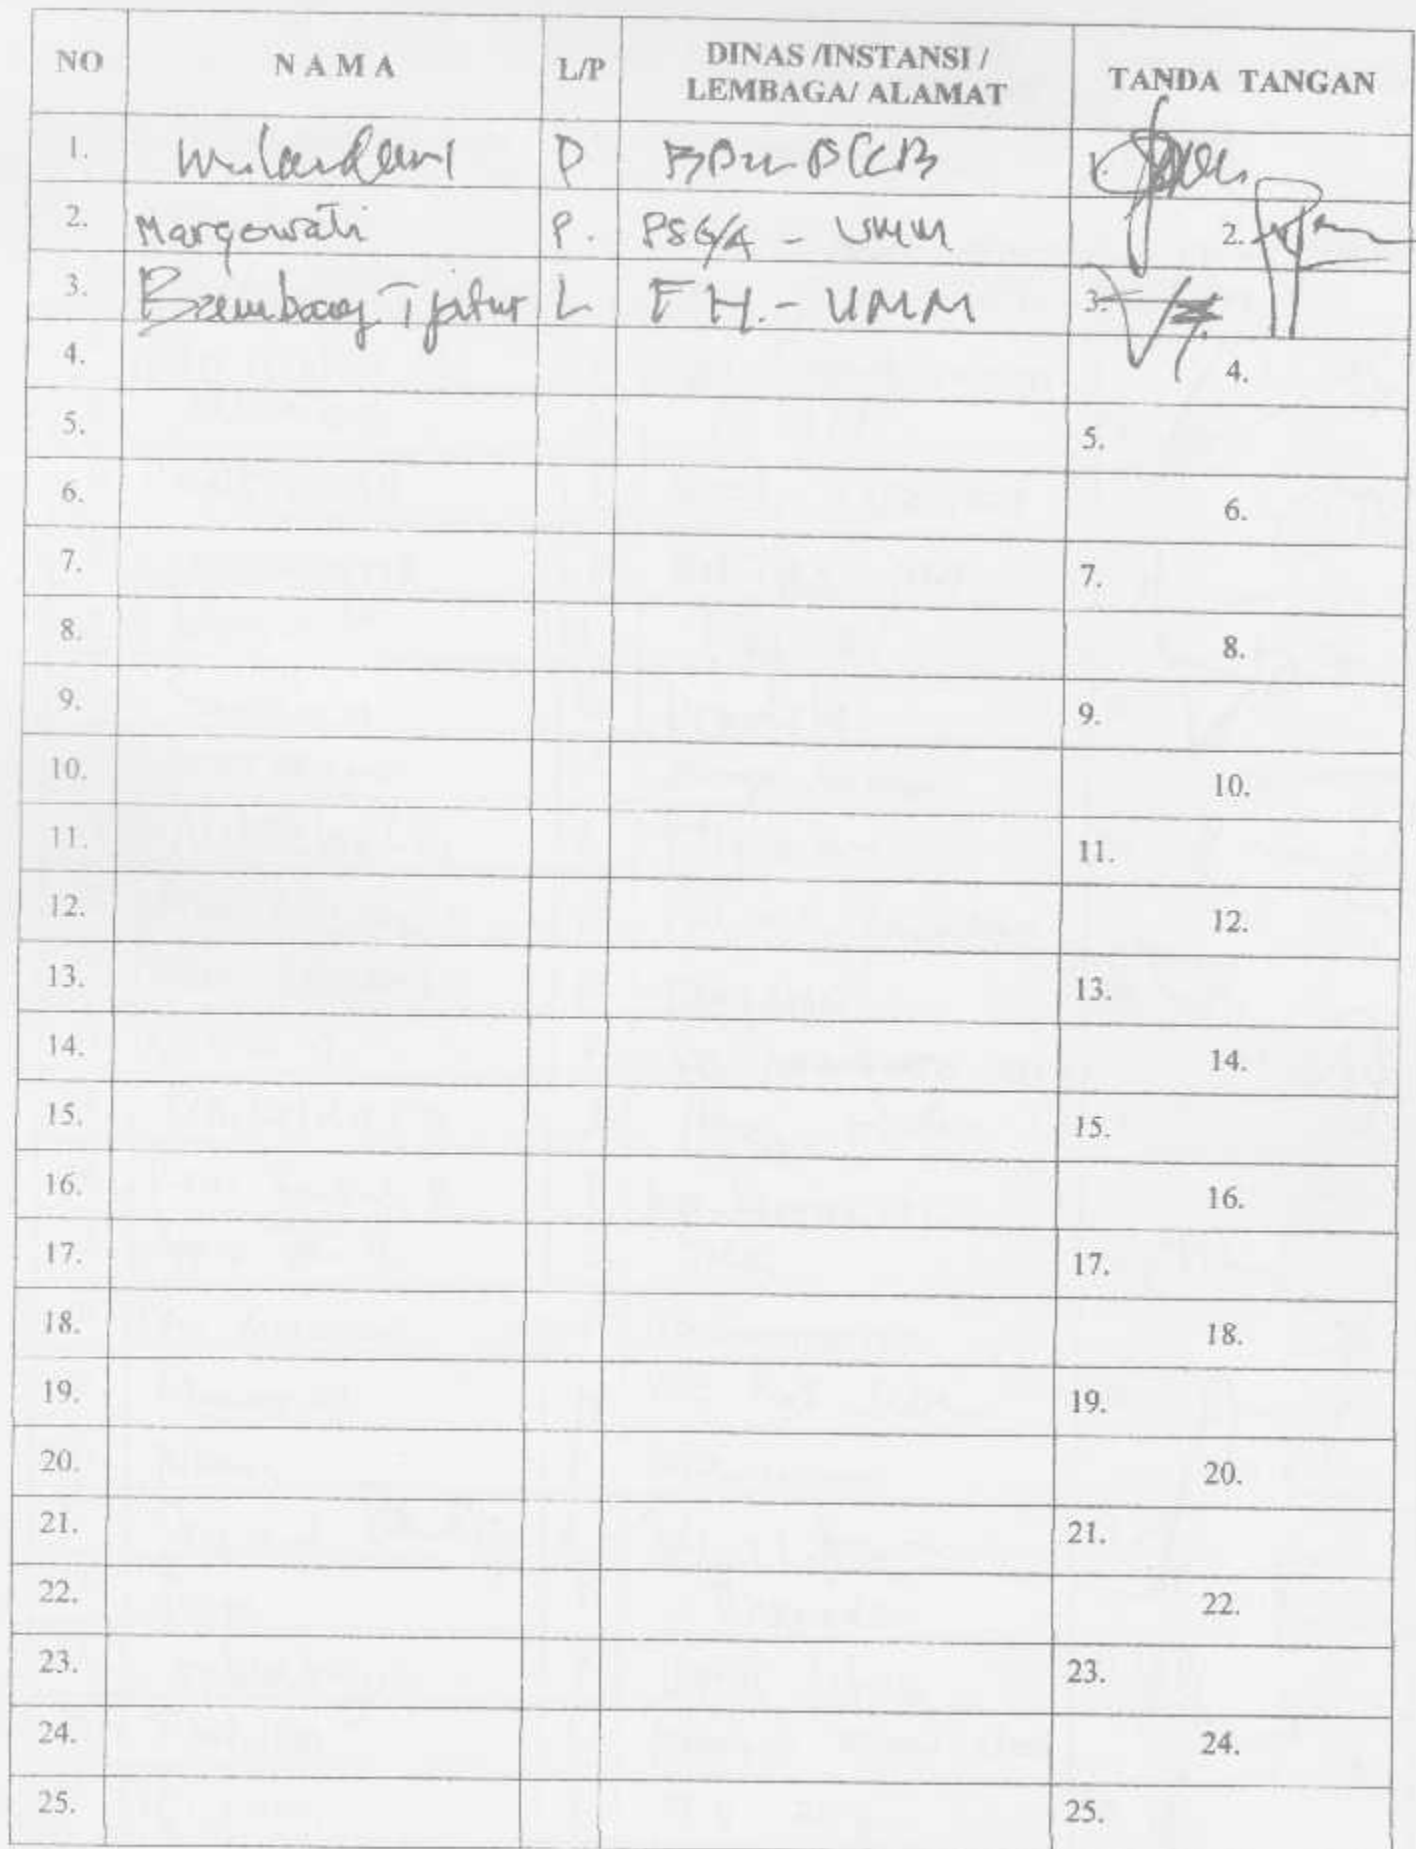 NO NAMA L/P DINAS /INSTANSI / LEMBAGA/ ALAMAT TANDA TANGAN
1. Wulandari P 1.
2. Margowati P. PSGA - UMM 2.
3. Bambang Tjatur L FH. - UMM 3.
4. 4.
5. 5.
6. 6.
7. 7.
8. 8.
9. 9.
10. 10.
11. 11.
12. 12.
13. 13.
14. 14.
15. 15.
16. 16.
17. 17.
18. 18.
19. 19.
20. 20.
21. 21.
22. 22.
23. 23.
24. 24.
25. 25.